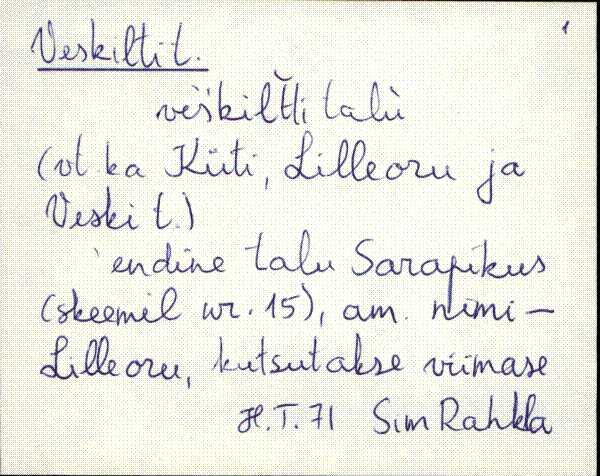 1
Veskilti t.
veskiltti talu
(vt. ka Küti, Lilleoru ja
Veski t.)
endine talu Sarapikus
(skeemil nr. 15), am. nimi –
Lilleoru, kutsutakse viimase
H.T. 71 Sim Rahkla